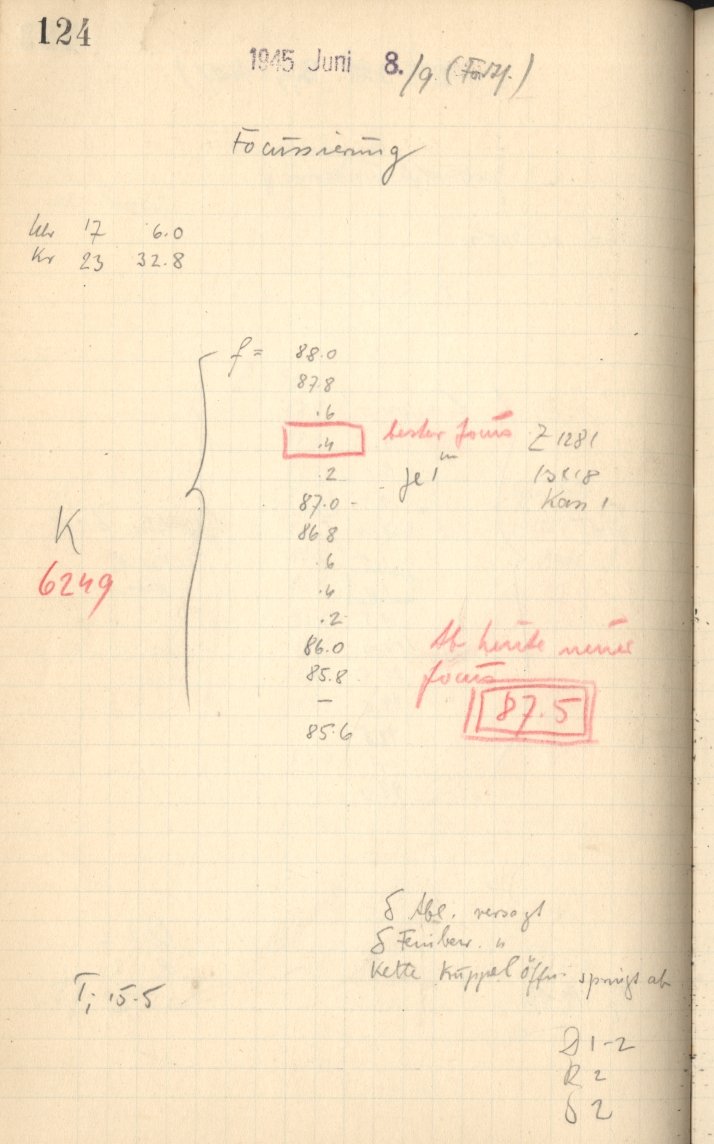 124
1945 Juni 8./9 (Forts.)
Focussierung
Uhr 17 6.0
Kr 23 32.8
f = 88.0
87.8
.6
.4 bester focus Z 1281
.2 je 1ᵐ
87.0 - Kass 1
86.8
.6
K
.4
6249
.2
86.0 Ab heute neuer
85.8 focus
– 87.5
85.6
δ Abl. versagt
δ Feinbew. "
Kette Kuppelöffn. springt ab
T; 15.5
D 1-2
R 2
δ 2